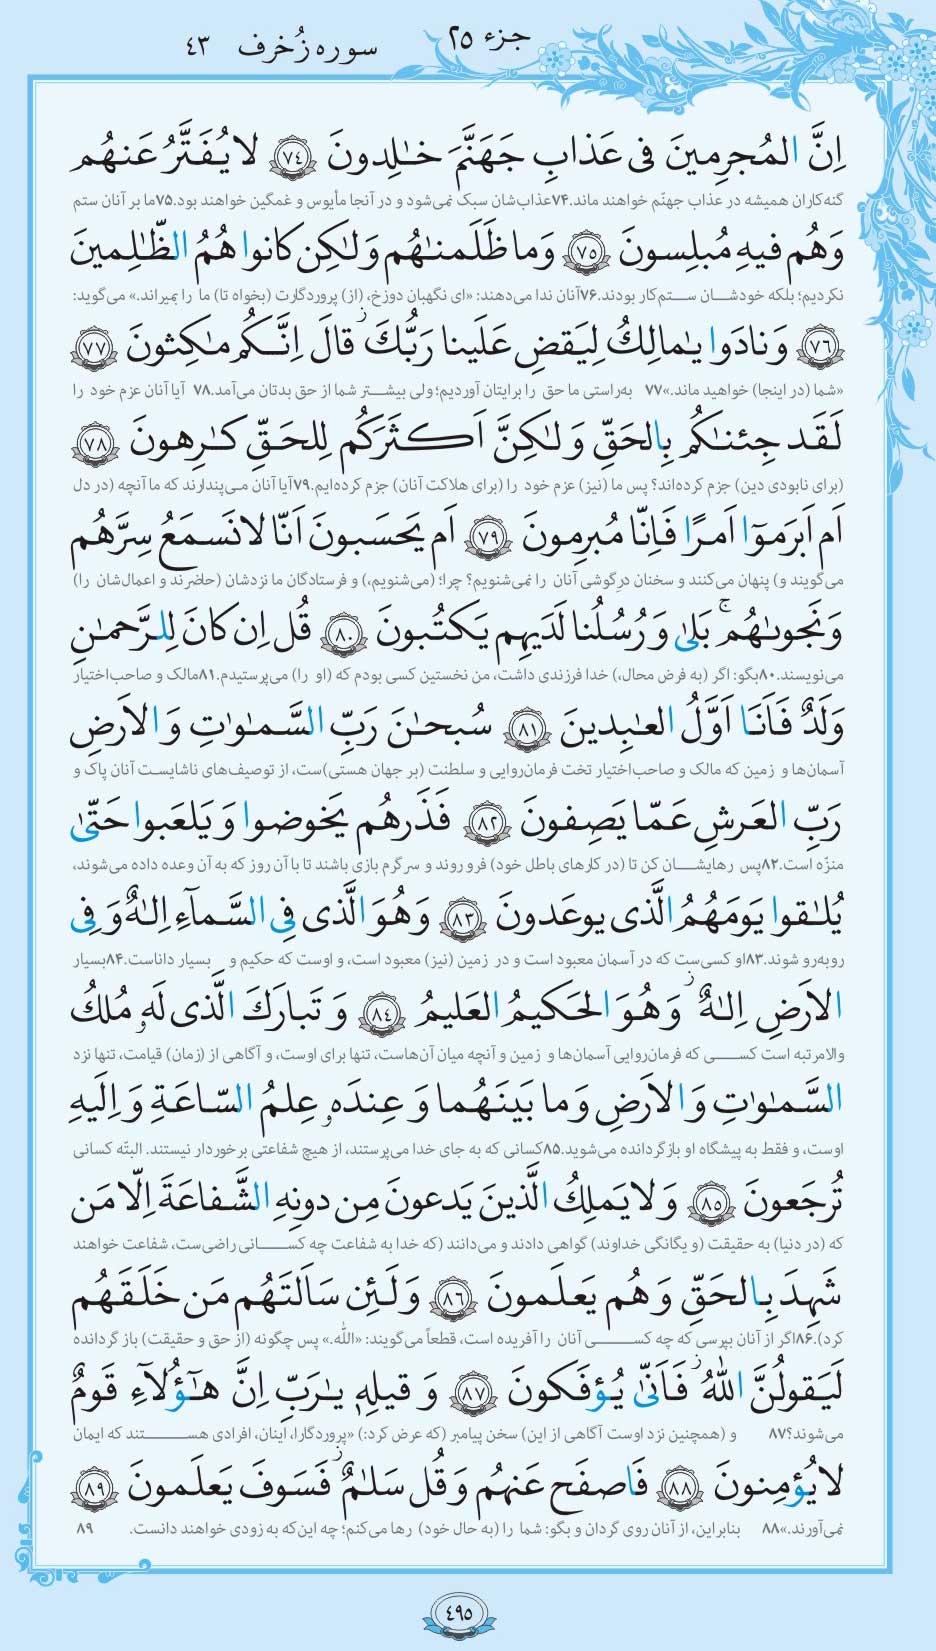 جزء ۲۵
سوره زُخرف ۴۳
اِنَّ المُجرِمینَ فی عَذابِ جَهَنَّمَ خـٰلِدونَ ﴿۷۴﴾ لا یُفَتَّرُ عَنهُم
گنه‌کاران همیشه در عذاب جهنّم خواهند ماند.۷۴عذاب‌شان سبک نمی‌شود و در آنجا مأیوس و غمگین خواهند بود.۷۵ما بر آنان ستم
وَهُم فیهِ مُبلِسونَ ﴿۷۵﴾ وَما ظَلَمنـٰهُم وَلـٰکِن کانوا هُمُ الظّـٰلِمینَ
نکردیم؛ بلکه خودشـان ستـم‌کار بودند.۷۶آنان ندا می‌دهند: «ای نگهبان دوزخ، (از) پروردگارت (بخواه تا) ما را بمیراند.» می‌گوید:
﴿۷۶﴾ وَنادَوا یـٰمالِکُ لِیَقضِ عَلَینا رَبُّکَ ۖ قالَ اِنَّکُم ماکِثونَ ﴿۷۷﴾
«شما (در اینجا) خواهید ماند.»۷۷ به‌راستی ما حق را برایتان آوردیم؛ ولی بیشتـر شما از حق بدتان می‌آمد.۷۸ آیا آنان عزم خود را
لَقَد جِئنـٰکُم بِالحَقِّ وَلـٰکِنَّ اَکثَرَکُم لِلحَقِّ کـٰرِهونَ ﴿۷۸﴾
(برای نابودی دین) جزم کرده‌اند؟ پس ما (نیز) عزم خود را (برای هلاکت آنان) جزم کرده‌ایم.۷۹آیا آنان می‌پندارند که ما آنچه (در دل
اَم اَبرَموٓا اَمرًا فَاِنّا مُبرِمونَ ﴿۷۹﴾ اَم یَحسَبونَ اَنّا لا نَسمَعُ سِرَّهُم
می‌گویند و) پنهان می‌کنند و سخنان درِگوشی آنان را نمی‌شنویم؟ چرا؛ (می‌شنویم،) و فرستادگان ما نزدشان (حاضرند و اعمال‌شان را)
وَنَجوىٰهُم ۚ بَلىٰ وَرُسُلُنا لَدَیهِم یَکتُبونَ ﴿۸۰﴾ قُل اِن کانَ لِلرَّحمـٰنِ
می‌نویسند.۸۰بگو: اگر (به فرض محال،) خدا فرزندی داشت، من نخستین کسی بودم که (او را) می‌پرستیدم.۸۱مالک و صاحب‌اختیار
وَلَدٌ فَاَنَا اَوَّلُ العـٰبِدینَ ﴿۸۱﴾ سُبحـٰنَ رَبِّ السَّمـٰوٰتِ وَالاَرضِ
آسمان‌ها و زمین که مالک و صاحب‌اختیار تخت فرمان‌روایی و سلطنت (بر جهان هستی)ست، از توصیف‌های ناشایست آنان پاک و
رَبِّ العَرشِ عَمّا یَصِفونَ ﴿۸۲﴾ فَذَرهُم یَخوضوا وَیَلعَبوا حَتّىٰ
منزّه است.۸۲پس رهایشـان کن تا (در کارهای باطل خود) فرو روند و سرگرم بازی باشند تا با آن روز که به آن وعده داده می‌شوند،
یُلـٰقوا یَومَهُمُ الَّذی یوعَدونَ ﴿۸۳﴾ وَهُوَ الَّذی فِی السَّمآءِ اِلـٰهٌ وَفِی
روبه‌رو شوند.۸۳او کسی‌ست که در آسمان معبود است و در زمین (نیز) معبود است، و اوست که حکیم و بسیار داناست.۸۴بسیار
الاَرضِ اِلـٰهٌ ۚ وَهُوَ الحَکیمُ العَلیمُ ﴿۸۴﴾ وَتَبارَکَ الَّذی لَهٗ مُلکُ
والامرتبه است کسـی که فرمان‌روایی آسمان‌ها و زمین و آنچه میان آن‌هاست، تنها برای اوست، و آگاهی از (زمان) قیامت، تنها نزد
السَّمـٰوٰتِ وَالاَرضِ وَما بَینَهُما وَعِندَهٗ عِلمُ السّاعَةِ وَاِلَیهِ
اوست، و فقط به پیشگاه او بازگردانده می‌شوید.۸۵کسانی که به جای خدا می‌پرستند، از هیچ شفاعتی برخوردار نیستند. البتّه کسانی
تُرجَعونَ ﴿۸۵﴾ وَلا یَملِکُ الَّذینَ یَدعونَ مِن دونِهِ الشَّفاعَةَ اِلّا مَن
که (در دنیا) به حقیقت (و یگانگی خداوند) گواهی دادند و می‌دانند (که خدا به شفاعت چه کسـانی راضی‌ست، شفاعت خواهند
شَهِدَ بِالحَقِّ وَهُم یَعلَمونَ ﴿۸۶﴾ وَلَئِن سَاَلتَهُم مَن خَلَقَهُم
کرد).۸۶اگر از آنان بپرسی که چه کسـی آنان را آفریده است، قطعاً می‌گویند: «اللّه.» پس چگونه (از حق و حقیقت) بازگردانده
لَیَقولُنَّ اللّٰهُ ۖ فَاَنّىٰ یُؤفَکونَ ﴿۸۷﴾ وَقیلِهٖ یـٰرَبِّ اِنَّ هـٰٓؤُلآءِ قَومٌ
می‌شوند؟۸۷ و (همچنین نزد اوست آگاهی از این) سخن پیامبر (که عرض کرد:) «پروردگارا، اینان، افرادی هسـتند که ایمان
لا یُؤمِنونَ ﴿۸۸﴾ فَاصفَح عَنهُم وَقُل سَلـٰمٌ ۚ فَسَوفَ یَعلَمونَ ﴿۸۹﴾
نمی‌آورند.»۸۸ بنابراین، از آنان روی گردان و بگو: شما را (به حال خود) رها می‌کنم؛ چه این‌که به زودی خواهند دانست. ۸۹
۴۹۵